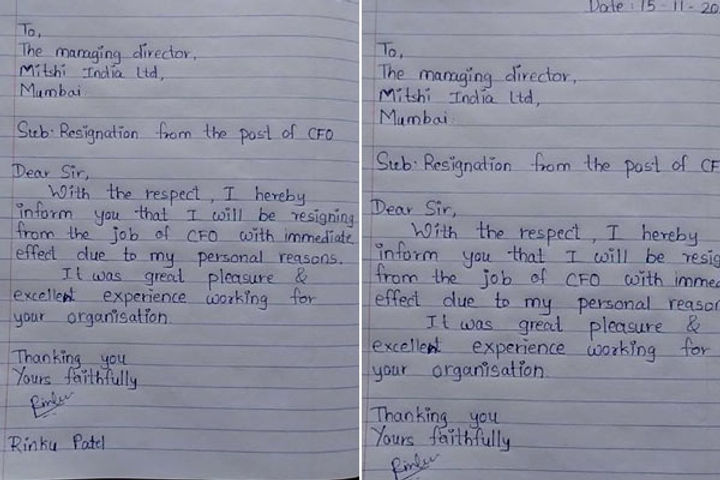 To,
The managing director,
Mitshi India Ltd,
Mumbai
Sub: Resignation from the post of CFO
Dear Sir,
With the respect, I hereby
inform you that I will be resigning
from the job of CFO with immediate
effect due to my personal reasons.
It was great pleasure &
excellent experience working for
your organisation.
Thanking you
Yours faithfully
Rinku
Rinku Patel
Date : 15 - 11 - 20
To,
The managing director,
Mitshi India Ltd,
Mumbai.
Sub: Resignation from the post of CF
Dear Sir,
With the respect, I hereby
inform you that I will be resig
from the job of CFO with immed
effect due to my personal reason
It was great pleasure &
excellent experience working for
your organisation.
Thanking you
Yours faithfully
Rinku